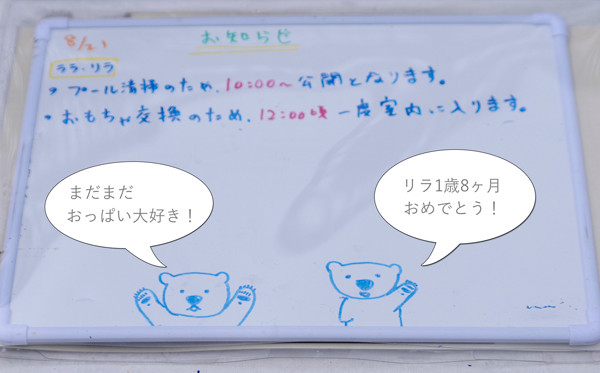 8/21
お知らせ
ララ・リラ
・プール清掃のため、10:00〜公開となります。
・おもちゃ交換のため、12:00頃一度室内に入ります。
まだまだ
おっぱい大好き！
リラ1歳8ヶ月
おめでとう！